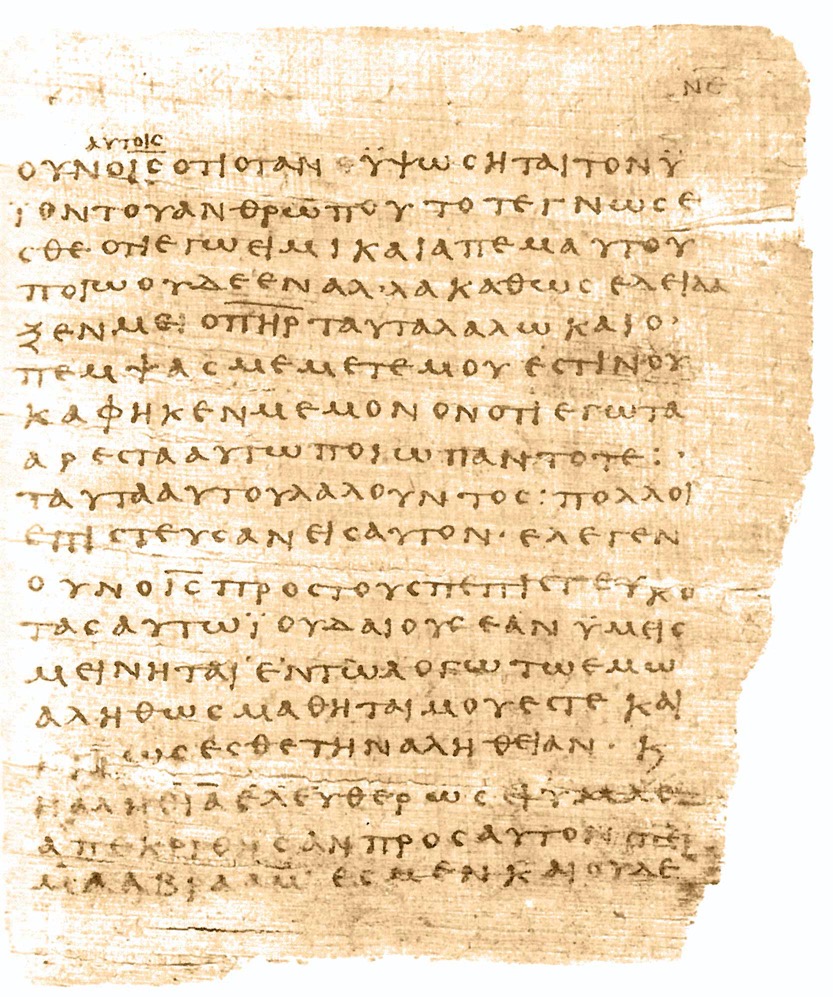 ΝΕ
ΑΥΤΟΙϹ
ΟΥΝ ΟΙϹ ΟΤΙ ΟΤΑΝ ΫΨωϹΗΤΑΙ ΤΟΝ Ϋ
ΙΟΝ ΤΟΥ ΑΝΘΡωΠΟΥ ΤΟΤΕ ΓΝωϹΕ
ϹΘΕ ΟΤΙ ΕΓω ΕΙΜΙ ΚΑΙ ΑΠ ΕΜΑΥΤΟΥ
ΠΟΙω ΟΥΔΕ ΕΝ ΑΛ·ΛΑ ΚΑΘωϹ ΕΔΕΙΔΑ
ΞΕΝ ΜΕ Ο Π̅Η̅Ρ̅ ΤΑΥΤΑ ΛΑΛω ΚΑΙ Ο·
ΠΕΜΨΑϹ ΜΕ ΜΕΤ ΕΜΟΥ ΕϹΤΙΝ ΟΥ
Κ ΑΦΗΚΕΝ ΜΕ ΜΟΝΟΝ ΟΤΙ ΕΓω ΤΑ
ΑΡΕϹΤΑ ΑΥΤω ΠΟΙω ΠΑΝΤΟΤΕ: ·
ΤΑΥΤΑ ΑΥΤΟΥ ΛΑΛΟΥΝΤΟϹ: ΠΟΛΛΟΙ
ΕΠΙϹΤΕΥϹΑΝ ΕΙϹ ΑΥΤΟΝ· ΕΛΕΓΕΝ
ΟΥΝ Ο Ι̅Ϲ̅ ΠΡΟϹ ΤΟΥϹ ΠΕΠΙϹΤΕΥΚΟ
ΤΑϹ ΑΥΤω ΪΟΥΔΑΙΟΥϹ ΕΑΝ ΫΜΕΙϹ
ΜΕΙΝΗΤΑΙ ΕΝ Τω ΛΟΓω Τω ΕΜω
ΑΛΗΘωϹ ΜΑΘΗΤΑΙ ΜΟΥ ΕϹΤΕ ΚΑΙ
ωϹΕϹΘΕ ΤΗΝ ΑΛΗΘΕΙΑΝ· Κ
Η ΑΛΗΘΕΙΑ ΕΛΕΥΘΕΡωϹΕΙ ΥΜΑϹ
ΑΠΕΚΡΙΘΗϹΑΝ ΠΡΟϹ ΑΥΤΟΝ
ΜΑ ΑΒΡΑΑΜ ΕϹΜΕΝ ΚΑΙ ΟΥΔΕ